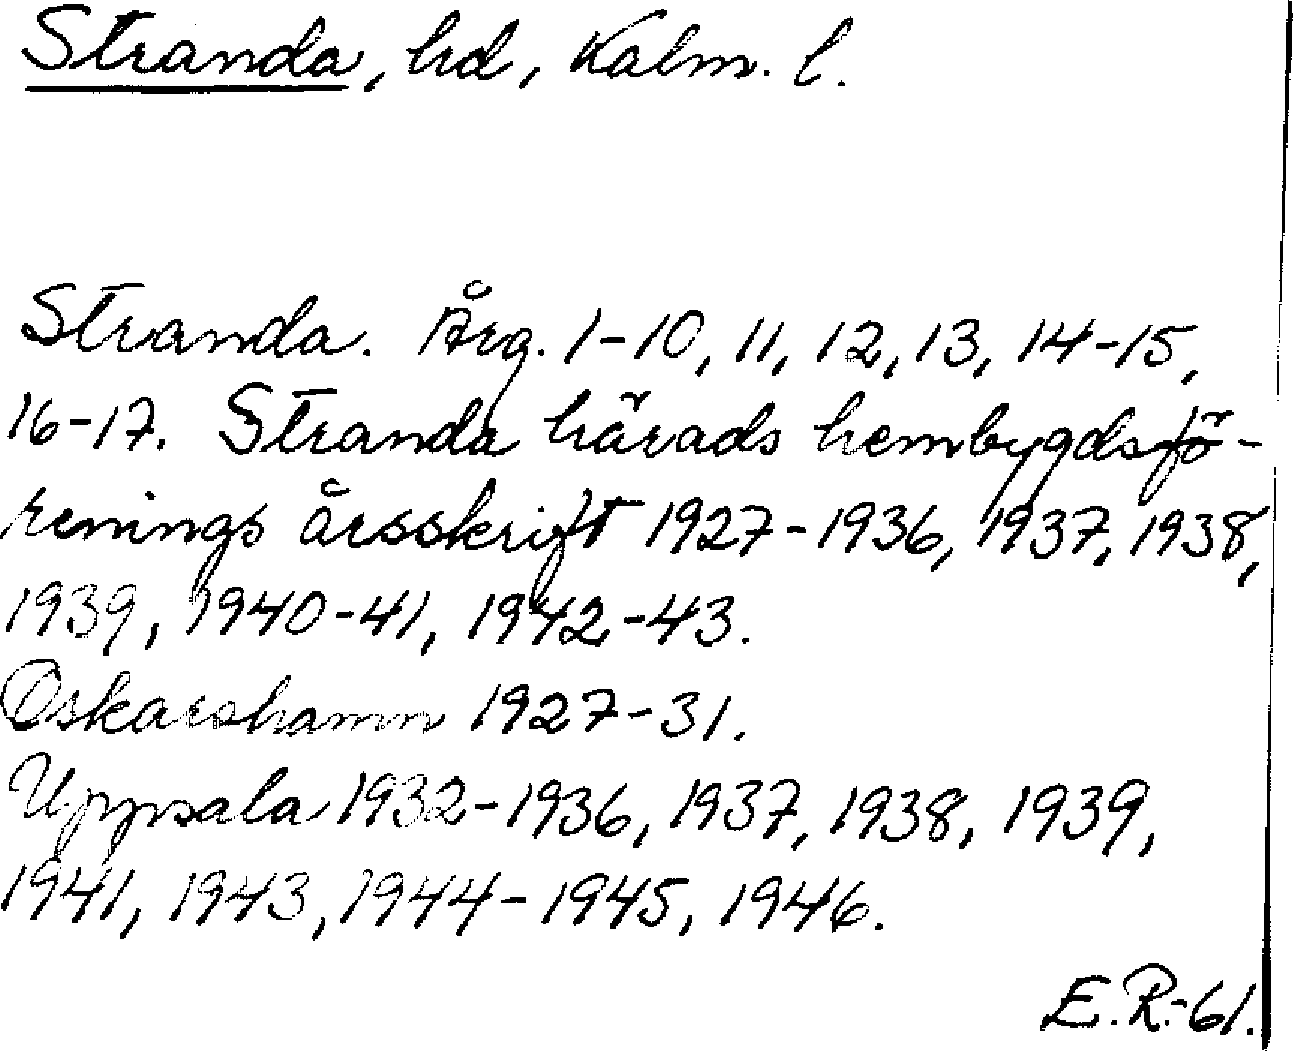 Stranda, hd, Kalm. l.
Stranda. Årg. 1-10, 11, 12, 13, 14-15,
16-17. Stranda härads hembygdsfö-
renings årsskrift 1927-1936, 1937, 1938,
1939, 1940-41, 1942-43.
Oskarshamn 1927-31.
Uppsala 1932-1936, 1937, 1938, 1939,
1941, 1943, 1944-1945, 1946.
E.R.-61.